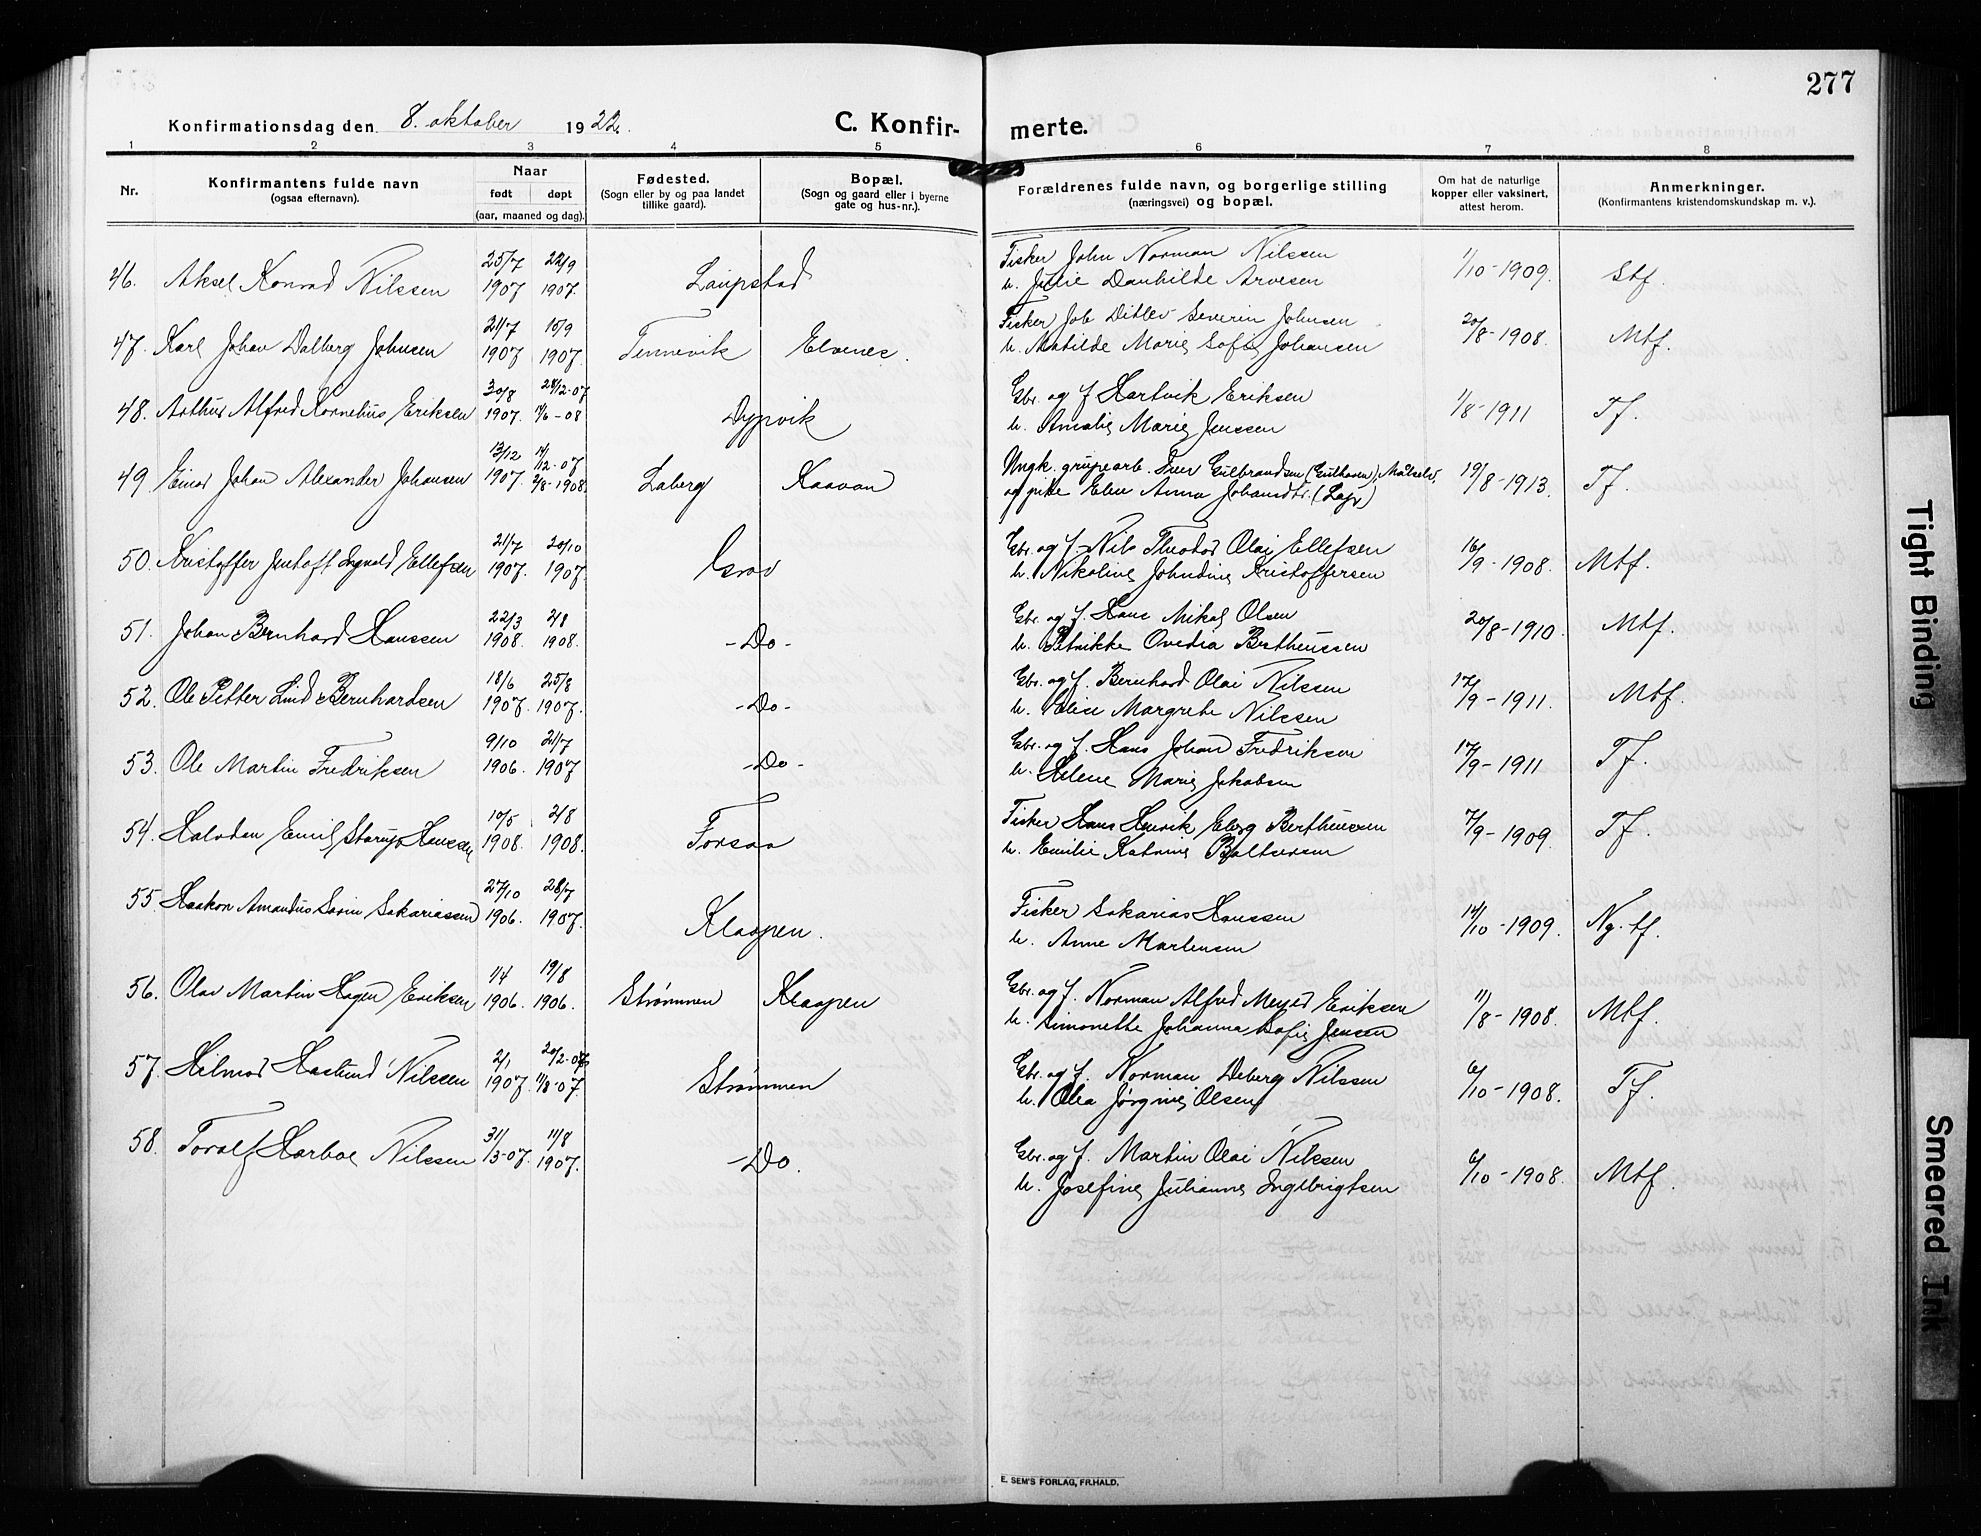 277
Konfirmationsdag den 8. oktober 1922.
C. Konfir-
merte.
1 2 3 4 5 6 7 8
Nr.
Konfirmantens fulde navn
(ogsaa efternavn).
Naar
født døpt
(aar, maaned og dag).
Fødested.
(Sogn eller by og paa landet
tillike gaard).
Bopæl.
(Sogn og gaard eller i byerne
gate og hus-nr.).
Forældrenes fulde navn, og borgerlige stilling
(næringsvei) og bopæl.
Om hat de naturlige
kopper eller vaksinert,
attest herom.
Anmerkninger.
(Konfirmantens kristendomskundskap m. v.).
46. Aksel Konrad Nilssen 25/7 1907 22/9 1907. Laupstad
Fisker John Norman Nilssen
h. Julie Danhilde Arvesen
1/10-1909. Stf.
47. Karl Johan Dalberg Johnsen 21/7 1907 15/9 1907. Tennevik Elvenes.
Fisker Job Ditlev Severin Johnsen
h. Matilde Marie Sofie Johansen
20/8-1908. Mtf.
48. Arthur Alfred Kornelius Eriksen 30/8 1907. 28/12-07 7/6-08 Dypvik
Gbr. og f. Hartvik Eriksen
h. Amalie Marie Jenssen
1/8-1911 Tf.
49 Einar Johan Alexander Johansen 13/12 1907. 14/12-07 2/8-1908. Laberg Kaavan
Ungk. grupearb. Iver Gulbrandsen (Gulhaven), Maalselv,
og pike Elen Anna Johansdtr. (Lap)
19/8-1913. Tf.
50. Kristoffer Jentoft Ingvald Ellefsen 21/7 1907. 20/10 1907. Grov
Gbr. og f. Nils Theodor Olai Ellefsen
h. Nikoline Johndine Kristoffersen
16/9-1908. Mtf.
51. Johan Bernhard Hanssen 22/3 1908. 2/8 1908. -Do-
Gbr. og f. Hans Mikal Olsen
h. Petrikke Ovedia Bertheussen
20/8-1910. Mtf.
52. Ole Petter Lind Bernhardsen 18/6 1907. 25/8 1907. -Do-
Gbr. og f. Bernhard Olai Nilssen
h. Elise Margrethe Nilssen
17/9-1911. Mtf.
53. Ole Martin Fredriksen 9/10 1906. 21/7 1907 -Do-
Gbr. og f. Hans Johan Fredriksen
h. Helene Marie Jakobsen
17/9-1911 Tf.
54. Halvdan Emil Starup Hanssen 10/5 1908. 2/8 1908. Forsaa
Fisker Hans Henrik Eberg Bertheussen
h. Emilie Katrine Baltsersen
7/9-1909. Tf.
55. Haakon Amandus Sørin Sakariassen 27/10 1906. 28/7 1907. Klaapen.
Fisker Sakarias Hanssen
h. Anne Martensen
14/10-1909. Ng. tf.
56. Olav Martin Hagen Eriksen 1/4 1906. 19/8 1906. Strømmen Klaapen
Gbr. og f. Norman Alfred Meyer Eriksen
h. Simonette Johanna Sofie Jensen
11/8-1908. Mtf.
57. Hilmar Haslund Nilssen 2/1 1907. 20/2-07 11/8-07. Strømmen
Gbr. og f. Norman Deberg Nilssen
h. Olea Jørgine Olsen
6/10-1908. Tf.
58. Toralf Harboe Nilssen 31/3-07. 11/8 1907. -Do.
Gbr. og f. Martin Olai Nilssen
h. Josefine Julianne Ingebrigtsen
6/10-1908. Mtf.
E. SEM'S FORLAG, FR.HALD.
Tight Binding
Smeared Ink